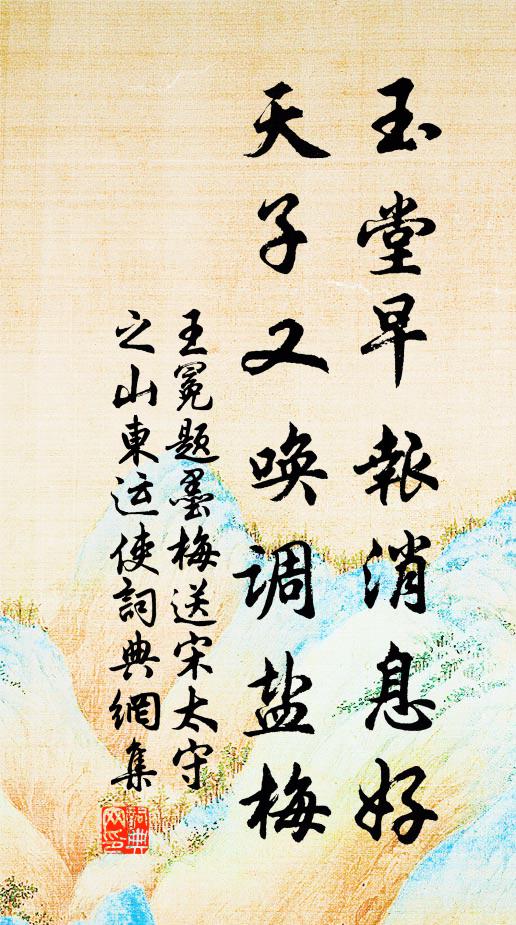 玉堂早報消息好
天子又唤调盐梅
王冕题墨梅送宋太守
之山東运使詞典網集